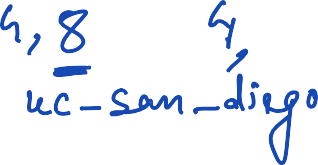 4, 8 4,
uc-san-diego